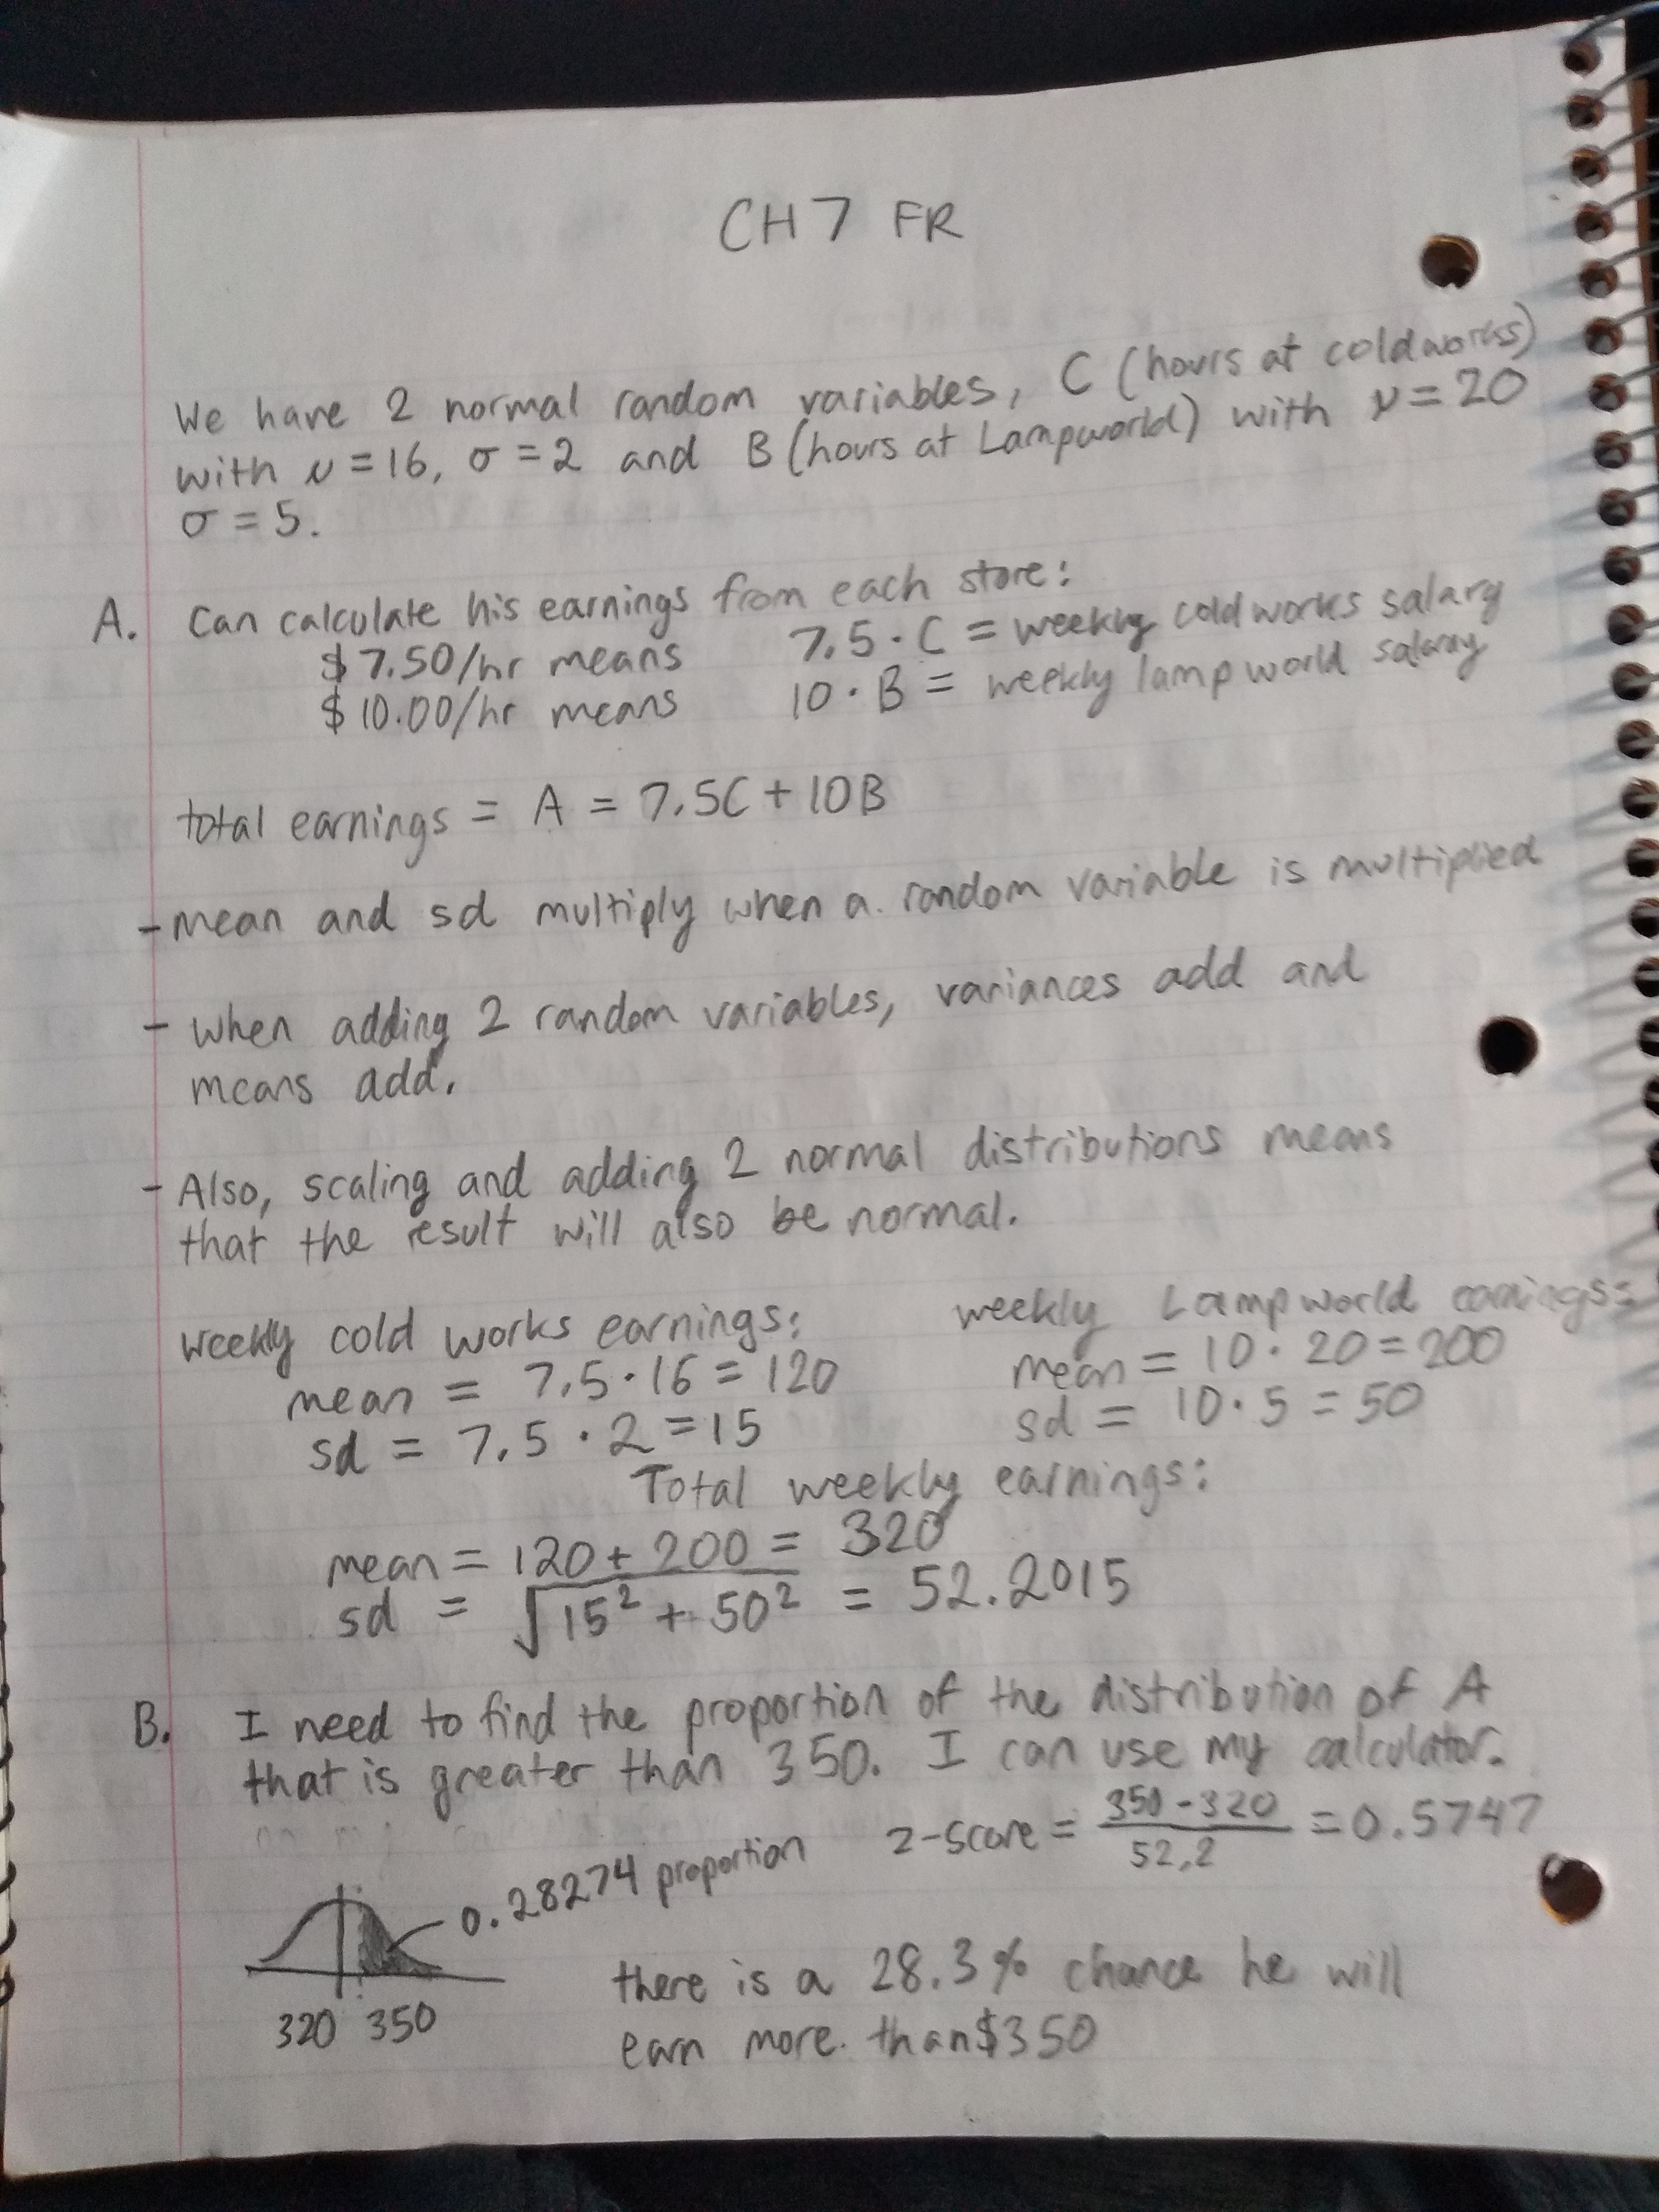 CH 7 FR
We have 2 normal random variables, C (hours at coldworks)
with μ = 16, σ = 2 and B (hours at Lampworld) with μ = 20
σ = 5.
A. Can calculate his earnings from each store:
$7.50/hr means 7.5 · C = weekly coldworks salary
$10.00/hr means 10 · B = weekly lampworld salary
total earnings = A = 7.5C + 10B
- mean and sd multiply when a random variable is multiplied
- when adding 2 random variables, variances add and
means add.
- Also, scaling and adding 2 normal distributions means
that the result will also be normal.
weekly cold works earnings: weekly Lampworld earnings:
mean = 7.5 · 16 = 120 mean = 10 · 20 = 200
sd = 7.5 · 2 = 15 sd = 10 · 5 = 50
Total weekly earnings:
mean = 120 + 200 = 320
sd = √15² + 50² = 52.2015
B. I need to find the proportion of the distribution of A
that is greater than 350. I can use my calculator.
z-score = 350 - 320 / 52.2 = 0.5747
0.28274 proportion
320 350
there is a 28.3% chance he will
earn more than $350